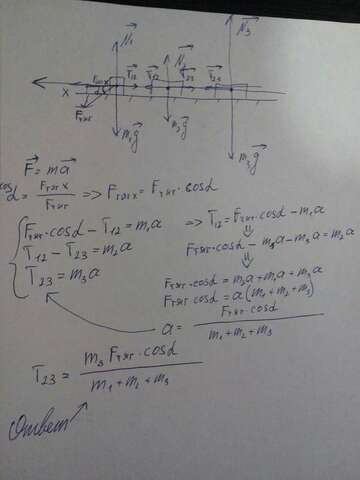 N₁ N₂ N₃
X Fтяг x T₁₂ T₁₂ T₂₃ T₂₃
α
Fтяг
m₁g m₂g m₃g
F = ma
cosα = Fтяг x / Fтяг => Fтяг x = Fтяг · cosα
Fтяг · cosα − T₁₂ = m₁a => T₁₂ = Fтяг · cosα − m₁a
T₁₂ − T₂₃ = m₂a
Fтяг · cosα − m₁a − m₃a = m₂a
T₂₃ = m₃a
Fтяг · cosα = m₂a + m₁a + m₃a
Fтяг · cosα = a(m₁ + m₂ + m₃)
a = Fтяг · cosα / m₁ + m₂ + m₃
T₂₃ = m₃ Fтяг · cosα / m₁ + m₂ + m₃
Ответ